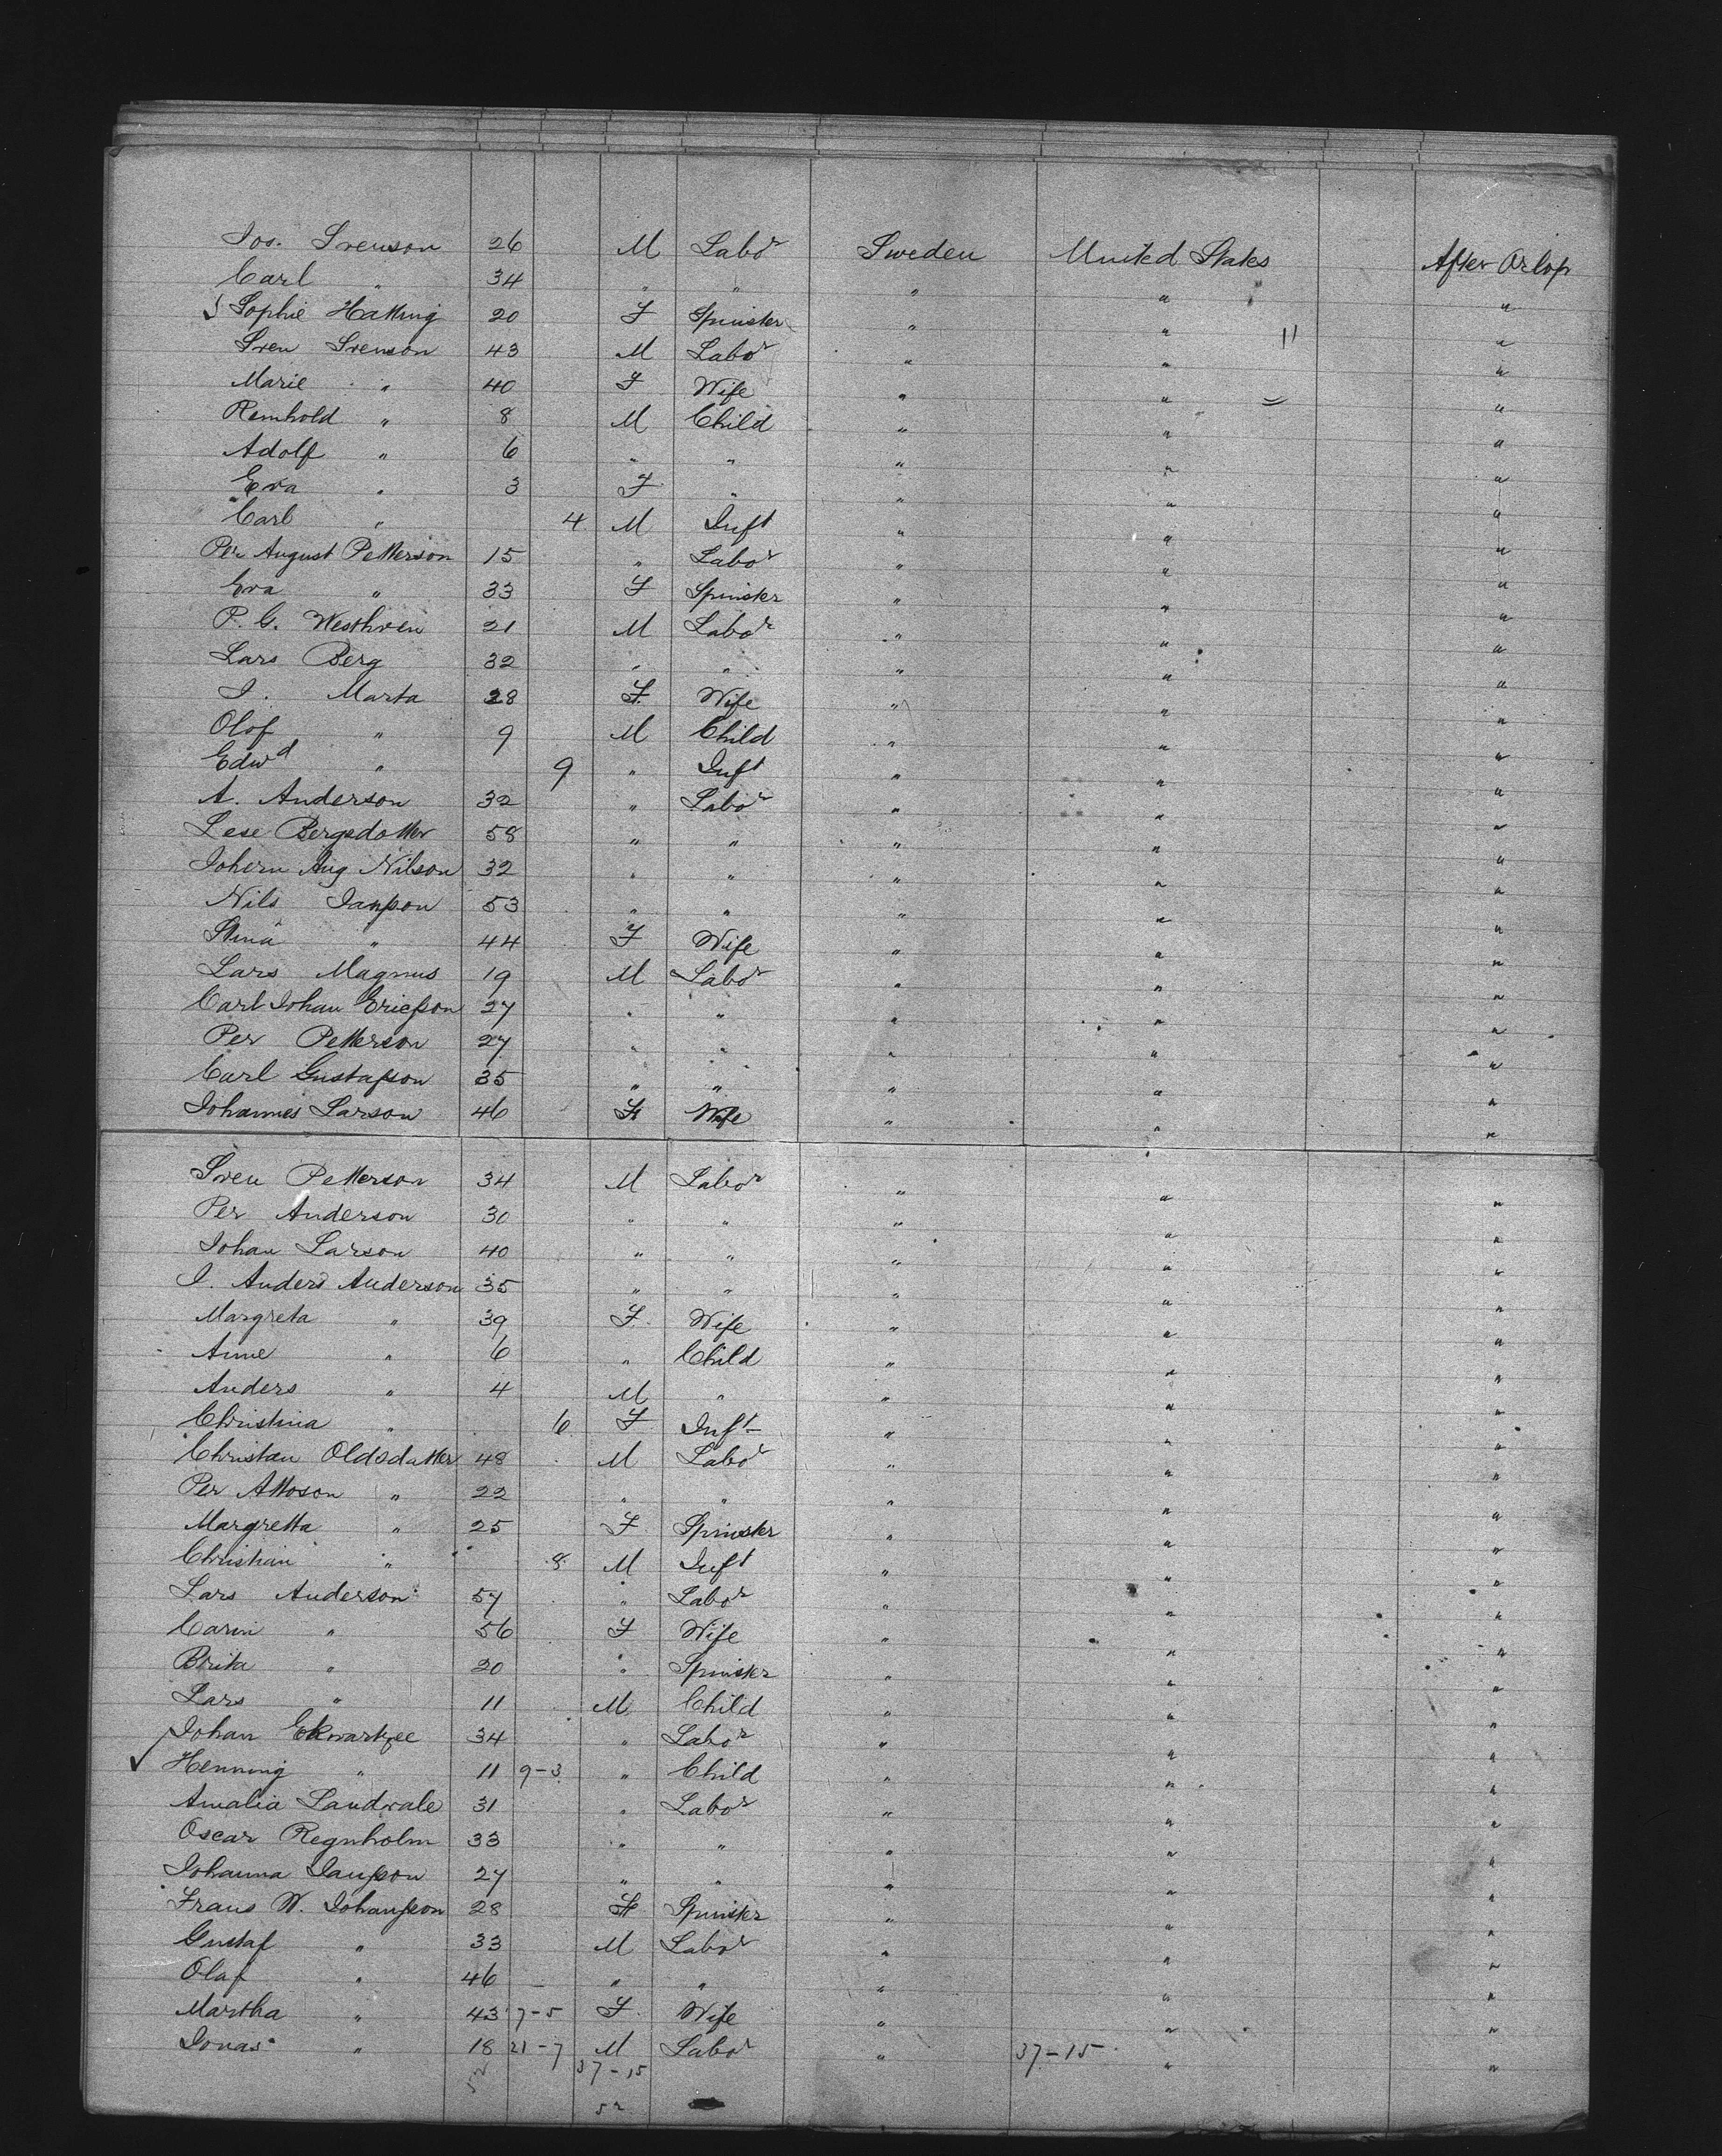 Jos. Svenson 26 M Labor Sweden United States After Orlop
Carl " 34 " " " " "
Sophie Hatting 20 F Spinster " " "
Sven Svenson 43 M Labor " " "
Marie " 40 F Wife " " "
Reinhold " 8 M Child " " "
Adolf " 6 " " " " "
Eva " 3 F " " " "
Carl " 4 M Inft " " "
Per August Petterson 15 " Labor " " "
Eva " 33 F Spinster " " "
P. G. 21 M Labor " " "
Lars Berg 32 " " " " "
J. Marta 28 F Wife " " "
Olof " 9 M Child " " "
Edwd " 9 " Inft " " "
A. Anderson 32 " Labor " " "
Lese Bergsdotter 58 " " " " "
Johern Aug Nilson 32 " " " " "
Nils Jansson 53 " " " " "
Stina " 44 F Wife " " "
Lars Magnus 19 M Labor " " "
Carl Johan Ericsson 27 " " " " "
Per Petterson 27 " " " " "
Carl Gustafson 35 " " " " "
Johannes Larson 46 F Wife " " "
Sven Petterson 34 M Labor " " "
Per Anderson 30 " " " " "
Johan Larson 40 " " " " "
J. Anders Anderson 35 " " " " "
Margreta " 39 F Wife " " "
Anne " 6 " Child " " "
Anders " 4 M " " " "
Christina " 6 F Inft " " "
Christan Oldsdatter 48 M Labor " " "
Per Attoson " 22 " " " " "
Margretta " 25 F Spinster " " "
Christian " 8 M Inft " " "
Lars Anderson 57 " Labor " " "
Carin " 56 F Wife " " "
Brita " 20 " Spinster " " "
Lars " 11 M Child " " "
Johan 34 " Labor " " "
Henning " 11 9-3 " Child " " "
Amalia Landvale 31 " Labor " " "
Oscar Regnholm 33 " " " " "
Johanna Jansson 27 " " " " "
Frans W. Johansson 28 F Spinster " " "
Gustaf " 33 M Labor " " "
Olaf " 46 " " " " "
Martha " 43 7-5 F Wife " " "
Jonas " 18 21-7 M Labor " 37-15 " "
52 37-15
52